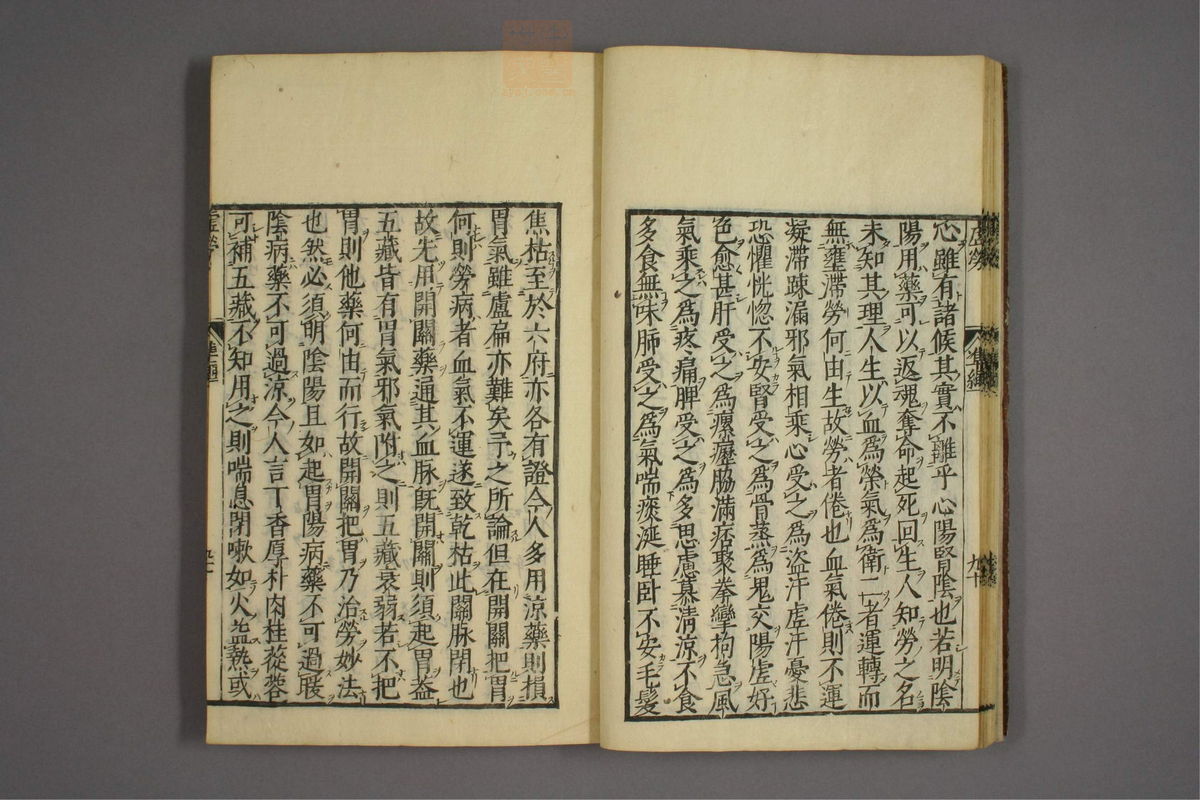 心雖有諸候其實不離乎心陽腎陰也若明陰
陽用藥可以返魂奪命起死回生人知勞之名
未知其理人生以血為榮氣為衛二者運轉而
無壅滯勞何由生故勞者倦也血氣倦則不運
凝滯踈漏邪氣相乘心受之為盜汗虛汗憂悲
恐懼恍惚不安腎受之為骨蒸為鬼交陽虛好
色愈甚肝受之為瘰癧脇滿痞聚拳攣拘急風
氣乘之為疼痛脾受之為多思慮慕清涼不食
多食無味肺受之為氣喘痰涎睡臥不安毛髮
焦枯至於六府亦各有證今人多用涼藥則損
胃氣雖盧扁亦難矣予之所論但在開關把胃
何則勞病者血氣不運遂致乾枯此關脉閉也
故先用開關藥通其血脉旣開關則須起胃葢
五藏皆有胃氣邪氣附之則五藏衰弱若不把
胃則他藥何由而行故開關把胃乃治勞妙法
也然必須明陰陽且如起胃陽病藥不可過暖
陰病藥不可過涼今人言丁香厚朴肉桂蓯蓉
可補五藏不知用之則喘息閉嗽如火葢熱或